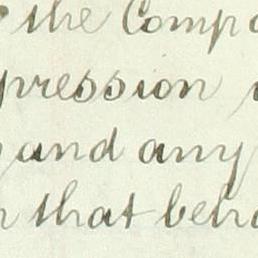 the Comp
pression
and any
that beha